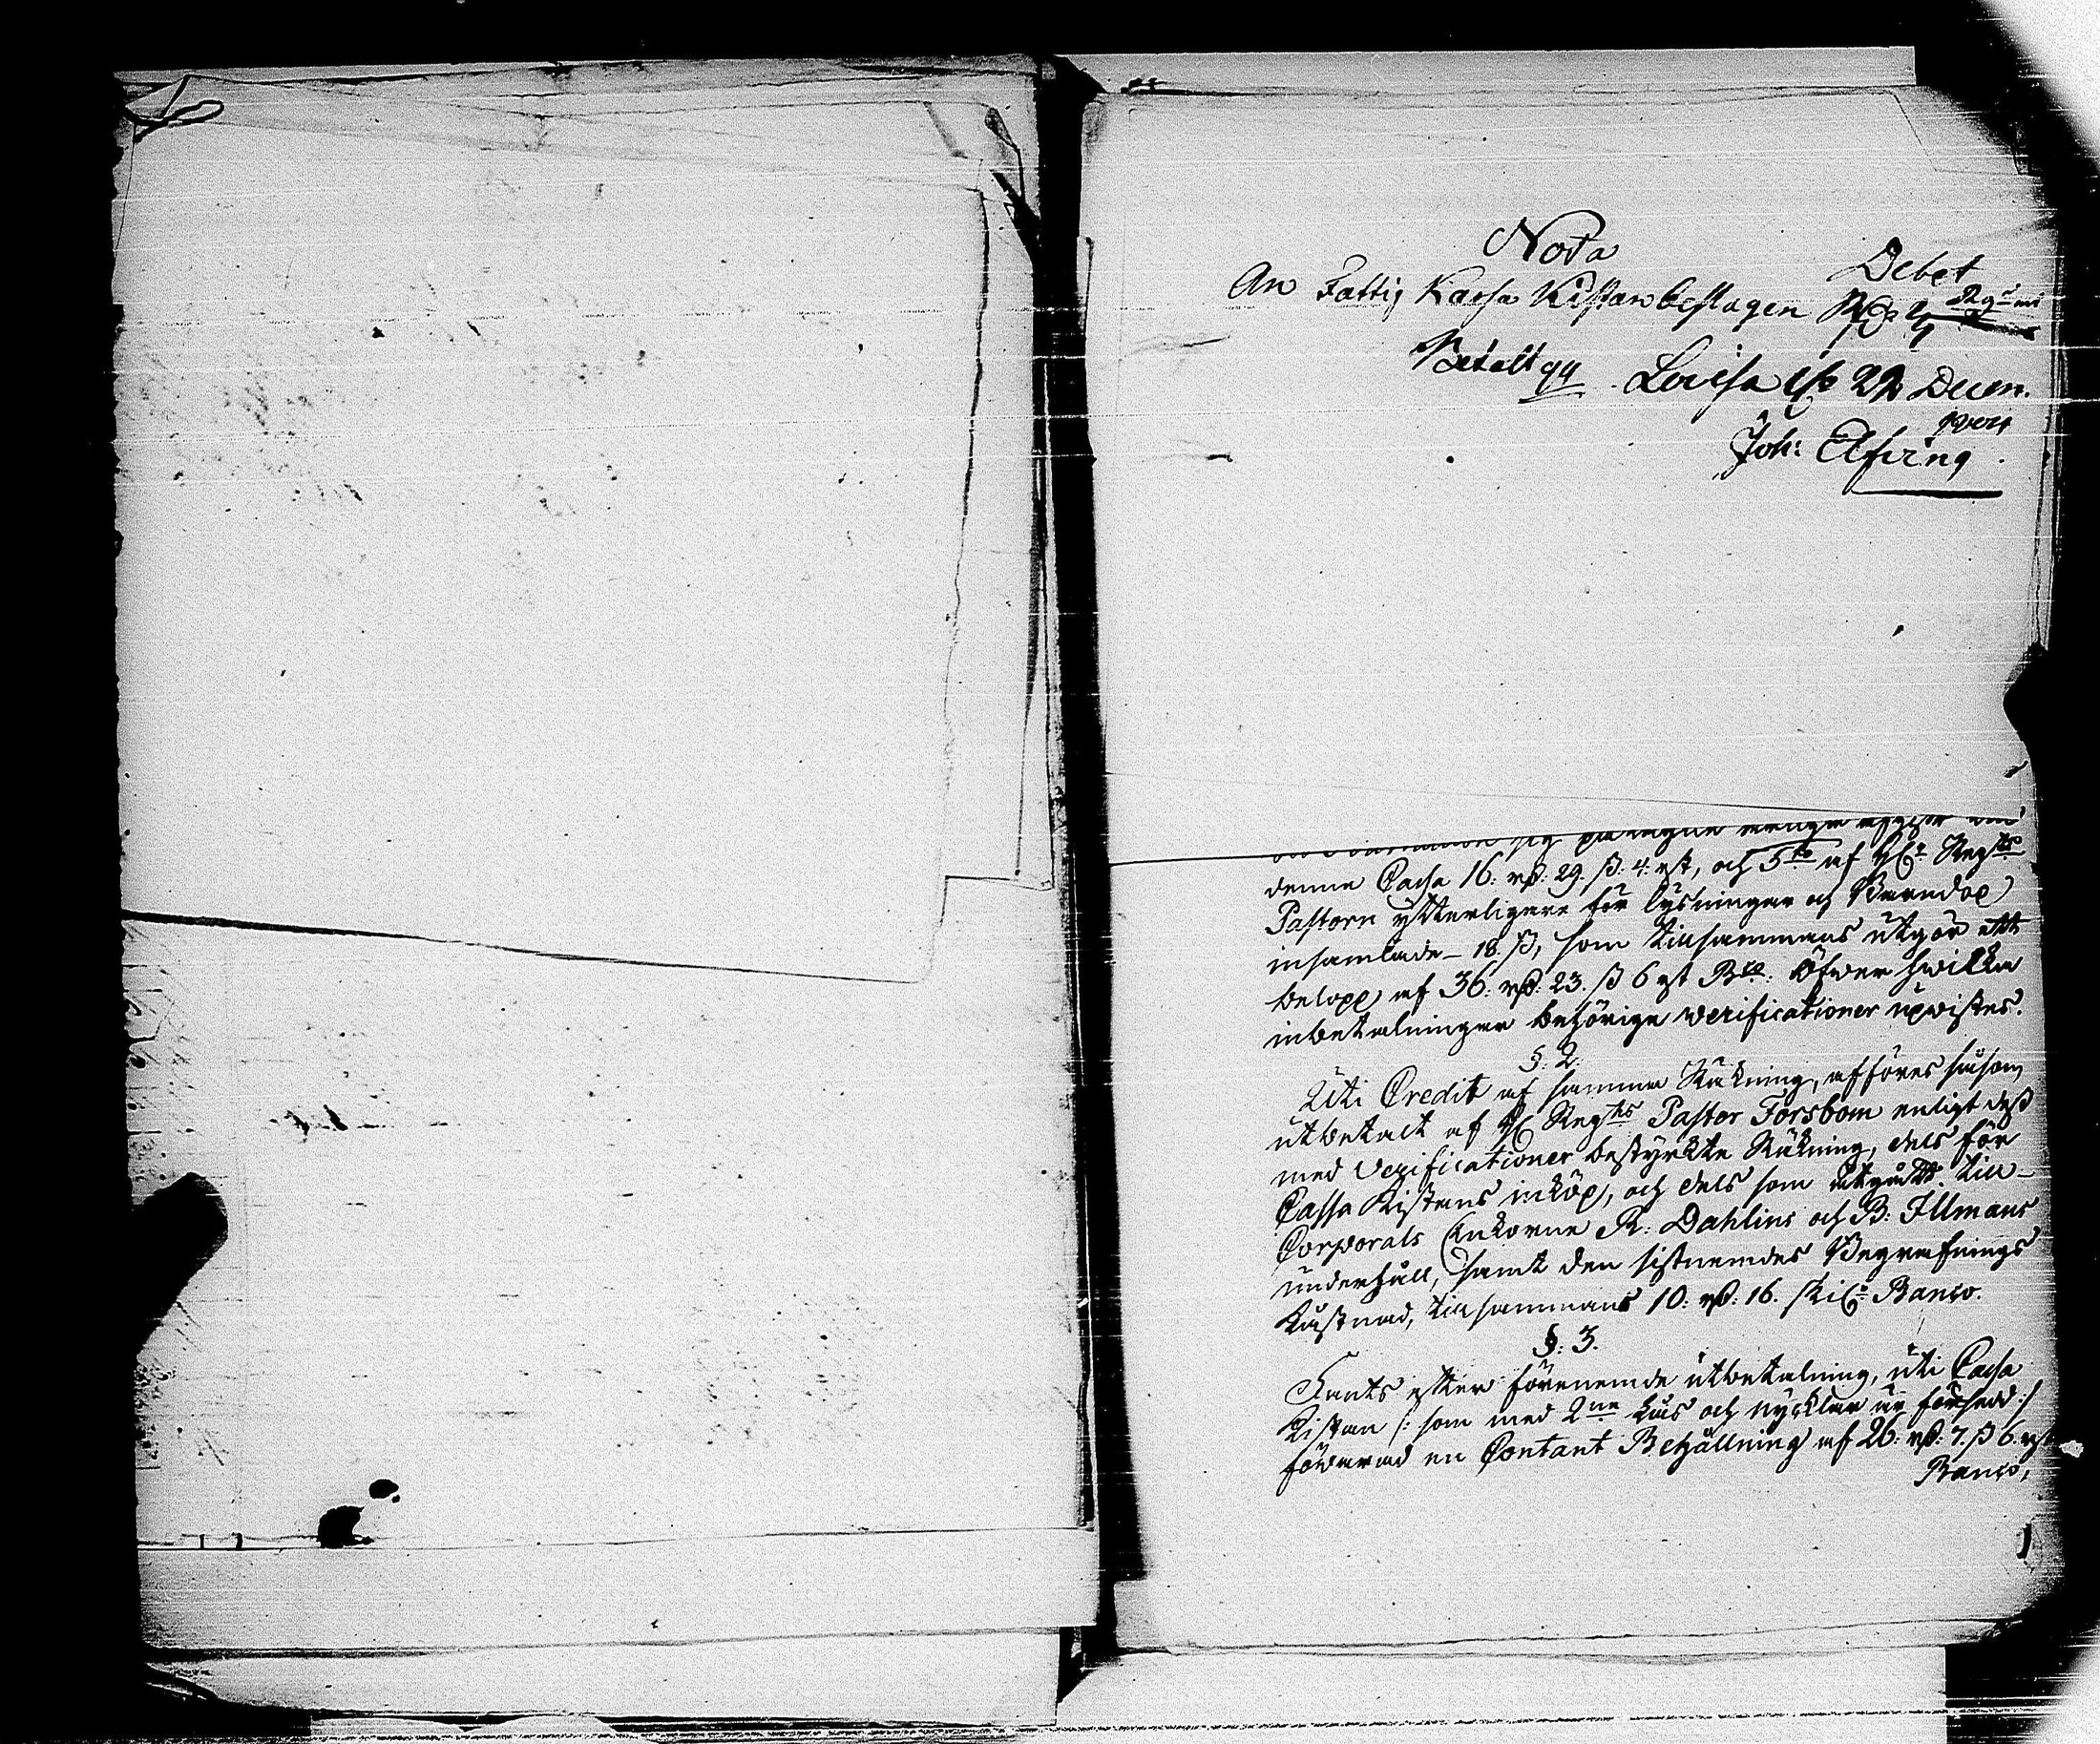 Nota
Debet
An Fattig Kassa Kistan beslagen R:
Betalt Lovisa 22 Decem.
Joh: Elfving
denna Cassa 16: rd: 29. ß: 4: rst, och af Regts
Pastorn ytterligare för lysningar och Barndop
insamlade 18. ß, som tillsammans utgör ett
belopp af 36: rd: 23. ß 6 rst Bco. Öfwer hwilka
inbetalningar behörige verificationer upwistes.
§. 2.
Uti Credit af samma Räkning, afföres såsom
utbetalt af Regts Pastor Forsbom enligt dess
med Verificationer bestyrkte Räkning, dels för
Cassa Kistans inköp, och dels som utgått till
Corporals Enkorne R: Dahlins och B: Illmans
underhåll, samt den sistnemdes Begrafnings
kostnad, tillsammans 10: rd: 16. skil: Banco.
§: 3.
Fants efter förenemde utbetalning, uti Cassa
Kistan /: som med 2ne lås och nycklar är försedd :/
förwarad en Contant Behållning af 26: rd: 7. ß 6. rst
Banco,